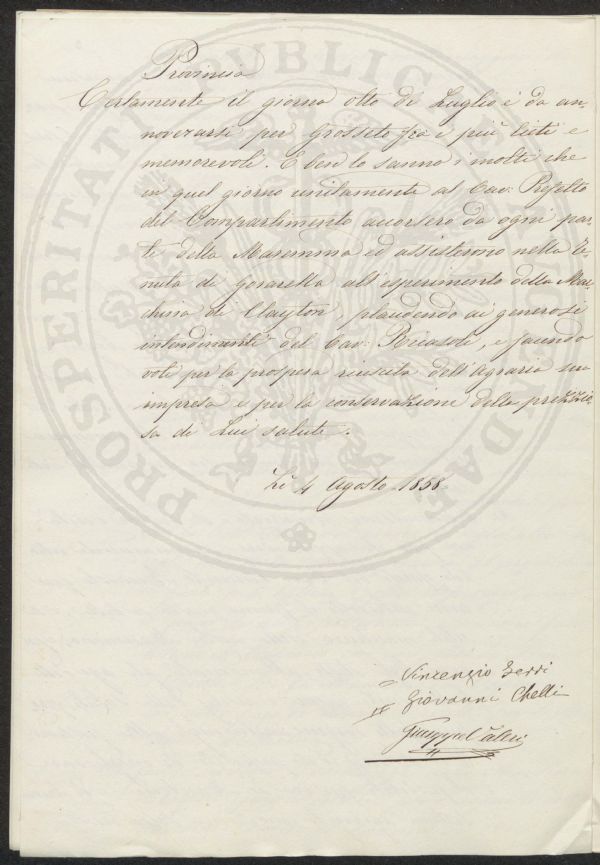 Provincia
Certamente il giorno otto di Luglio è da an-
noverarsi per Grosseto fra i più lieti e
memorevoli. E ben lo sanno i molti che
in quel giorno unitamente al Cav: Prefetto
del Compartimento accorsero da ogni par-
te della Maremma ed assisterono nella Te-
nuta di Gorarella all'esperimento della Mac-
china di Clayton, plaudendo ai generosi
intendimenti del Cav: Ricasoli, e facendo
voti per la prospera riuscita dell'agraria sua
impresa e per la conservazione della prezio-
sa di Lui salute.
Li 4 Agosto 1858
Vincenzio
Giovanni Chelli
PROSPERITATI PUBLICAE AUGENDAE